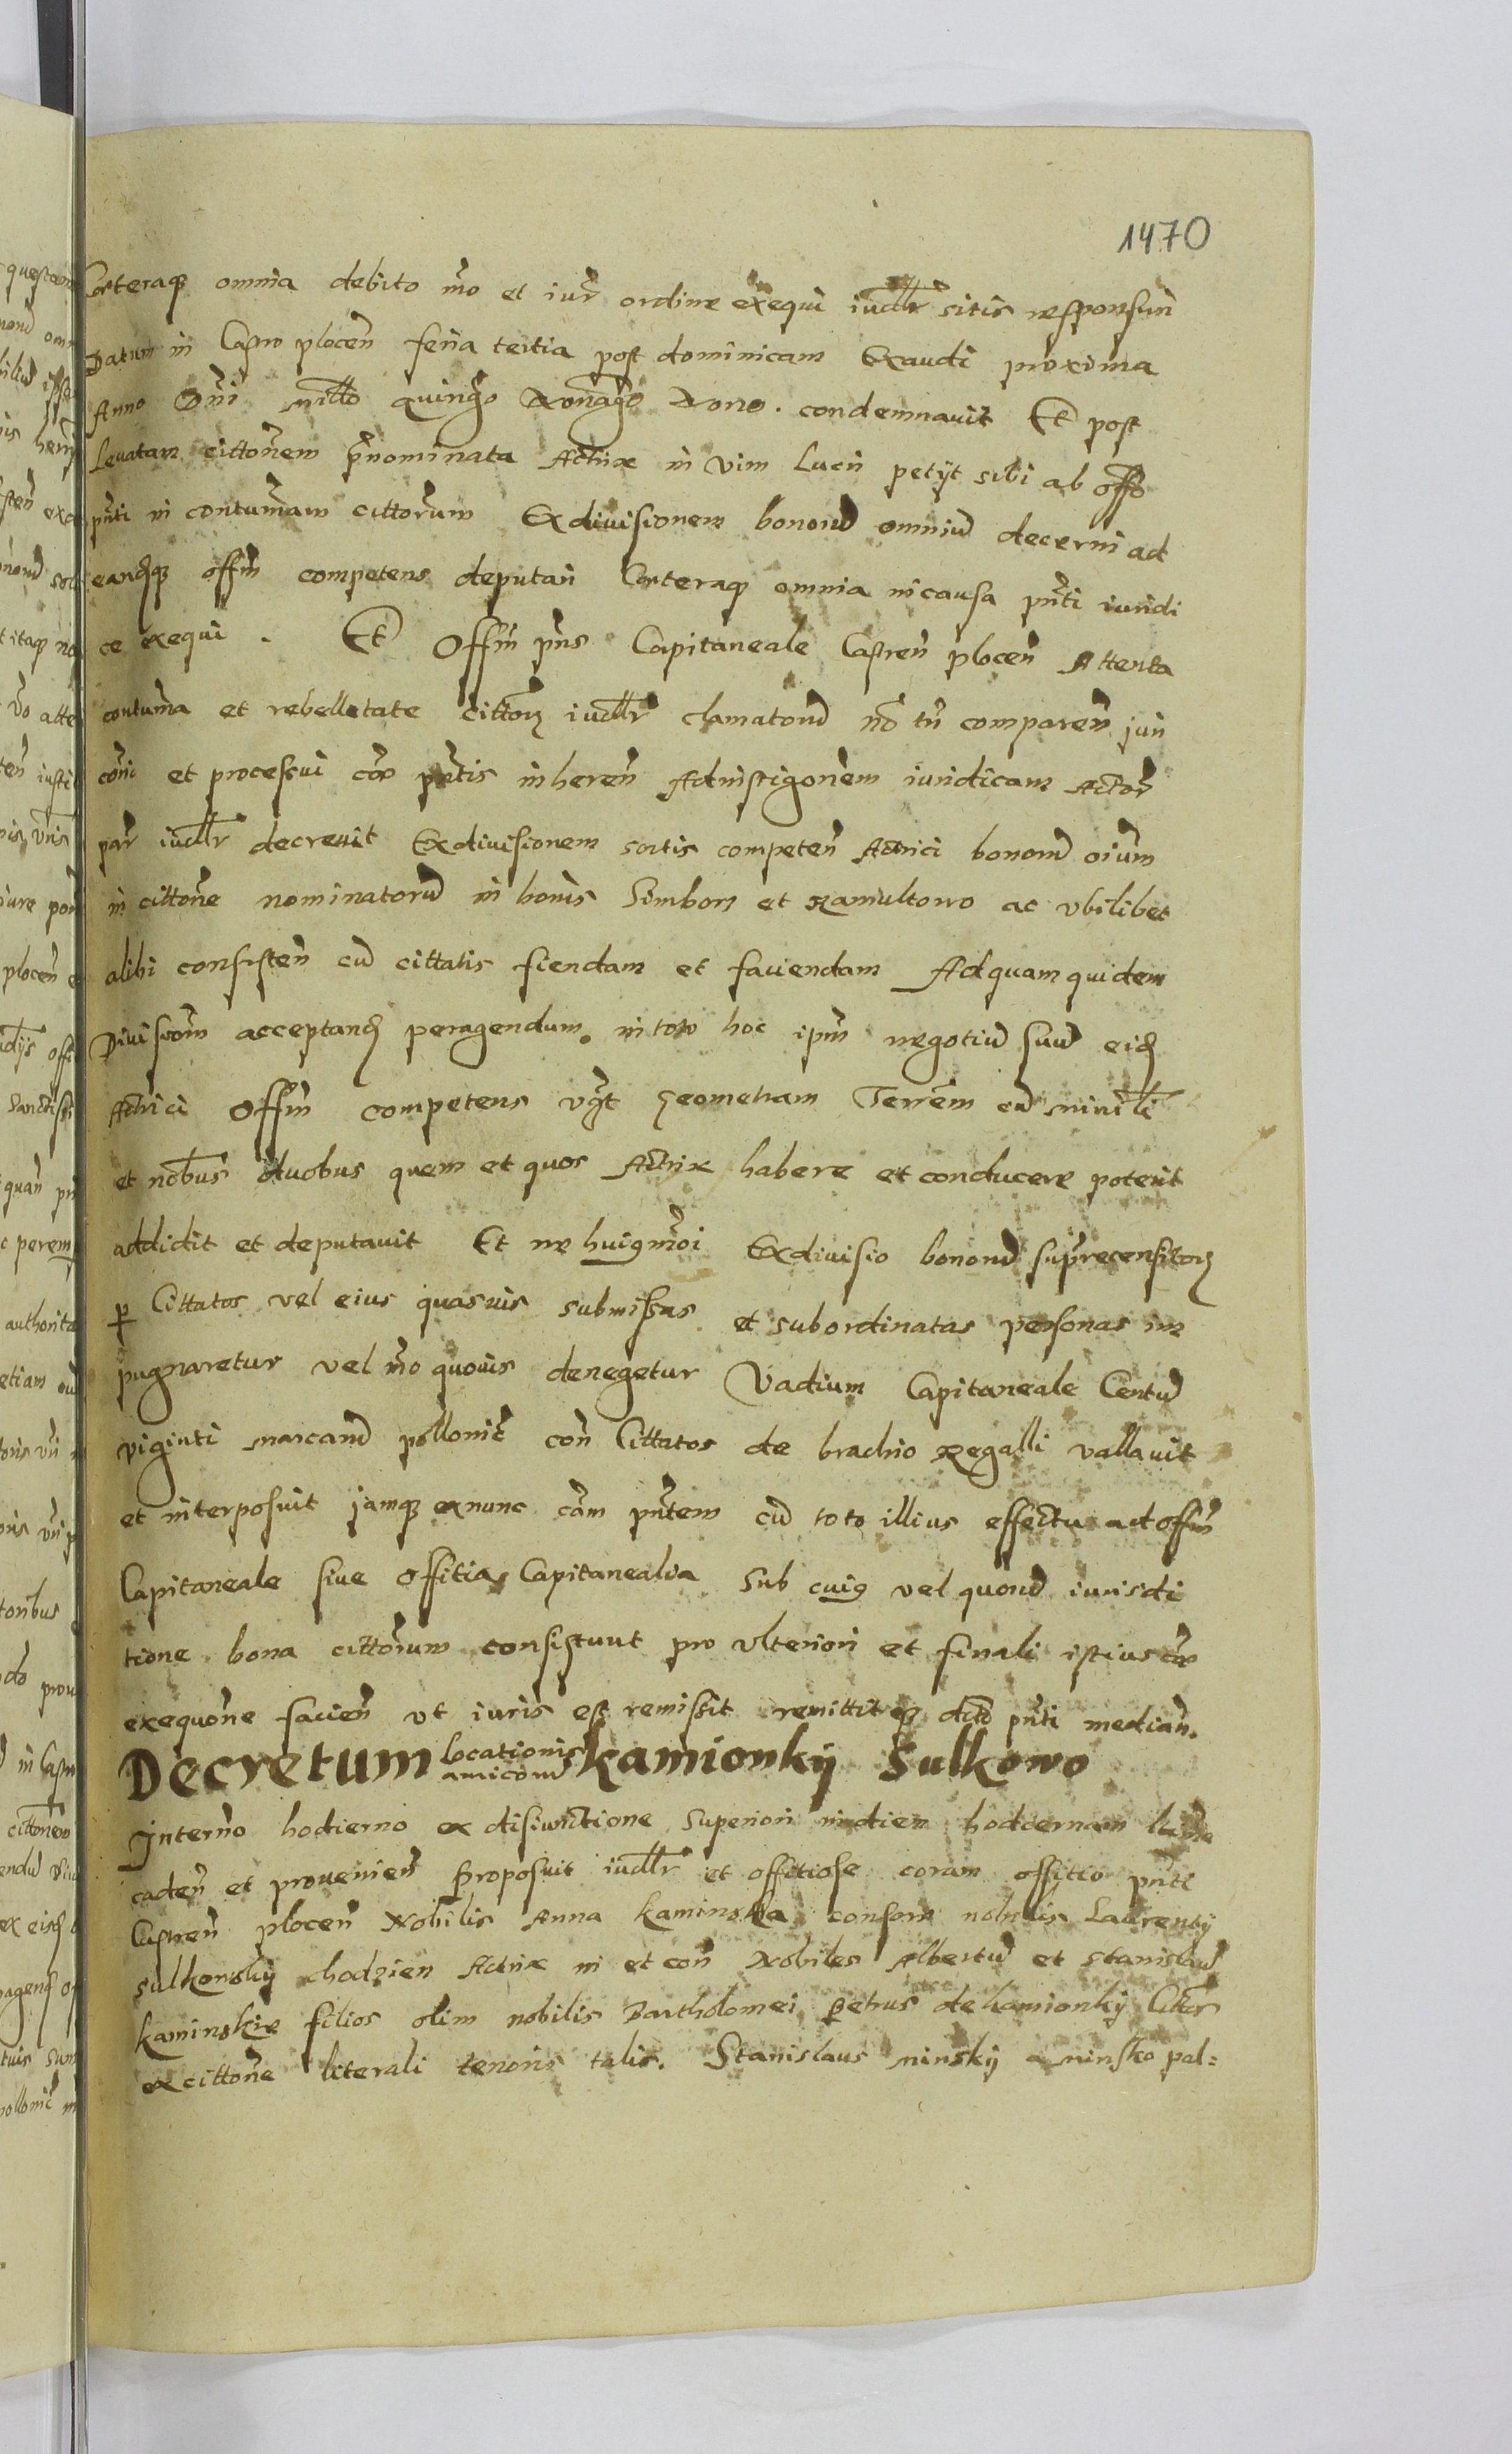 1470
Caeteraqȝ omnia debito mo et iur ordine exequi iudlr sitis responsuri
Datum in Castro plocen feria tertia post dominicam Exaudi proxima
Anno Dni millo quingo Nonago Nono . condemnavit Et post
Levatam cittonem pnominata Actrix in vim Lucri petijt sibi ab offo
pnti in contumam cittorum Exdivisionem bonorū omniū decerni ad
eandqȝ offm competens deputari Caeteraqȝ omnia in causa pnti iuridi
ce exequi . Et Offm pns Capitaneale Castren plocen Attenta
contuma et rebellitate cittorȝ iudlr clamatorū no tn comparen juri
coni et processui cae pntis inheren Ad instigonem iuridicam Actor
par iudlr decrevit Exdivisionem sortis competen Actrici bonorū oium
in cittone nominatorū in bonis Simbory et Ramultowo ac ubilibet
alibi consisten cū cittatis fiendam et faciendam Ad quam quidem
Divisionm acceptand peragendum in toto hoc ipm negotiū suū eid
Actrici Offm competens vgt geometram Terrem cū minrli
et nobbus duobus quem et quos Actrix habere et conducere poterit
addidit et deputavit Et ne huigmoi Exdivisio bonorū suprecensitorȝ
p Cittatos vel eius quasvis submissas et subordinatas personas im
pugnaretur vel mo quovis denegetur Vadium Capitaneale Centū
viginti marcarū pollonic con Cittatos de brachio Regalli vallavit
et interposuit jamqȝ ex nunc cam pntem cū toto illius effectu ad offm
Capitaneale sive Offitia Capitanealia sub cuig vel quorū iurisdi
tione bona cittorum consistunt pro ulteriori et finali istius cae
exequone facien ut iuris est remissit remittitqȝ dcto pnti median.
Decretum locationis amicorū Kamionky Sulkowo
In termo hodierno ex disiunctione superiori in diem hodiernam
caden et provenien Proposuit iudlr et offitiose coram offitio pnti
Castren plocen Nobilis Anna Kaminska consors nobilis Laurentij
Sulkowsky Actrix in et con Nobiles Albertū et Stanislaū
Kaminskie filios olim nobilis Bartholomei Petrus de Kamionky
ex cittone literali tenoris talis. Stanislaus minsky a minsko pal=